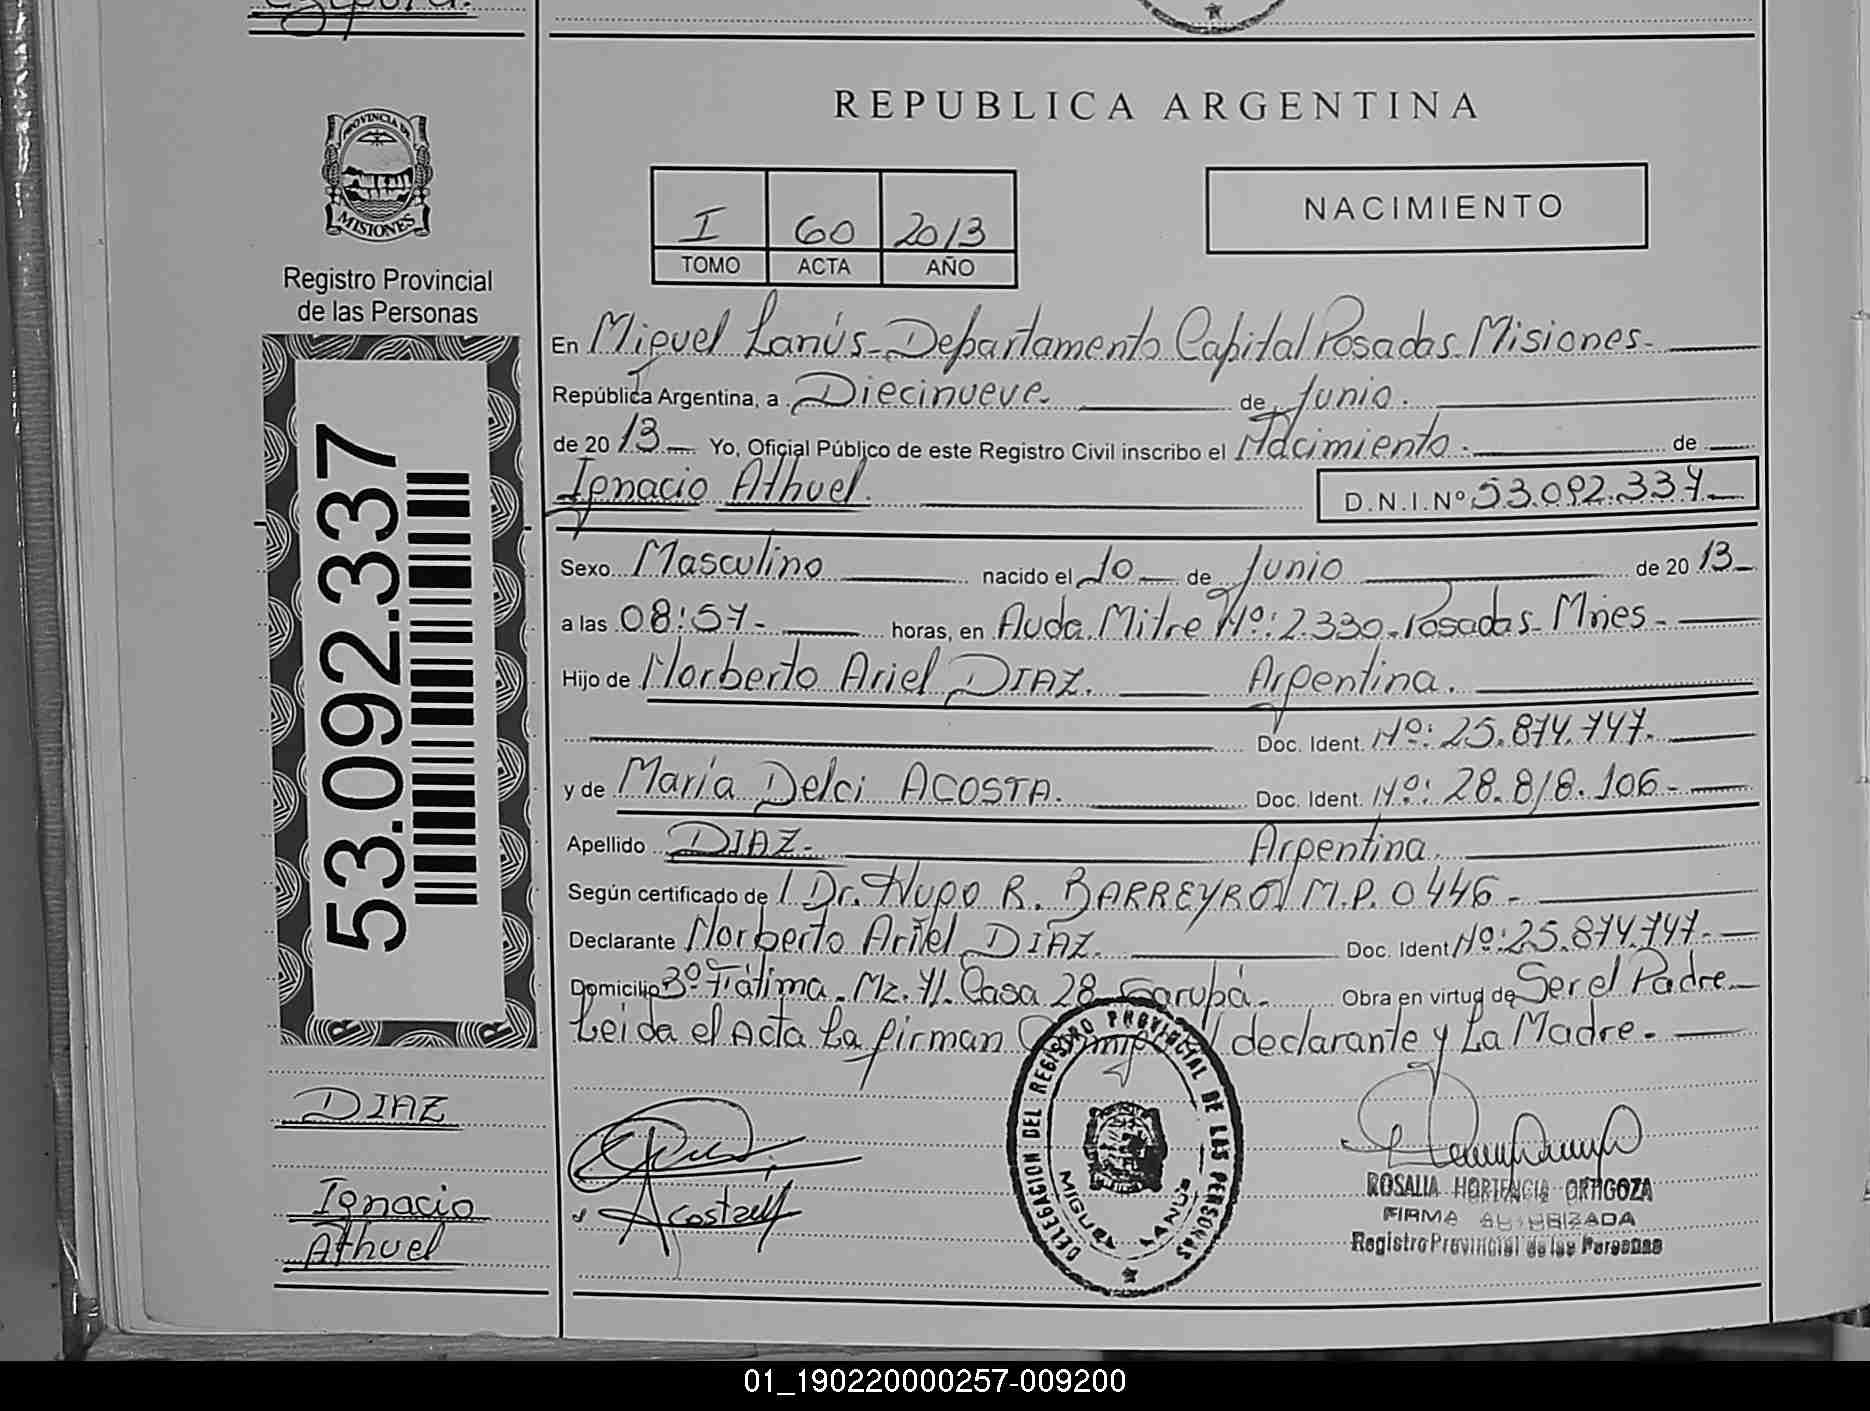 REPUBLICA ARGENTINA
PROVINCIA DE
MISIONES
Registro Provincial
de las Personas
I 60 2013
TOMO ACTA AÑO
NACIMIENTO
53.092.337
En Miguel Lanús - Departamento Capital Posadas - Misiones -
República Argentina, a Diecinueve - de Junio.
de 20 13 - Yo, Oficial Público de este Registro Civil inscribo el Nacimiento - de
Ignacio Athuel. D.N.I.Nº 53.092.337 -
Sexo Masculino nacido el 10 de Junio de 20 13 -
a las 08:57 - horas, en Avda. Mitre Nº: 2.330 - Posadas - Mnes -
Hijo de Norberto Ariel DIAZ. Argentina.
Doc. Ident. Nº: 25.874.747.
y de María Delci ACOSTA. Doc. Ident. Nº: 28.818.106 -
Apellido DIAZ - Argentina.
Según certificado de / Dr. Hugo R. BARREYRO / M.P. 0446 -
Declarante Norberto Ariel DIAZ. Doc. Ident Nº: 25.874.747 -
Domicilio Bº Fátima - Mz. 41. Casa 28 Garupá - Obra en virtud de Ser el Padre -
Leida el Acta La firman declarante y La Madre -
DIAZ
Ignacio
Athuel
Acosta
DELEGACION DEL REGISTRO PROVINCIAL DE LAS PERSONAS
MIGUEL LANÚS
ROSALIA HORTENCIA ORTIGOZA
FIRMA AUTORIZADA
Registro Provincial de las Personas
01_190220000257-009200